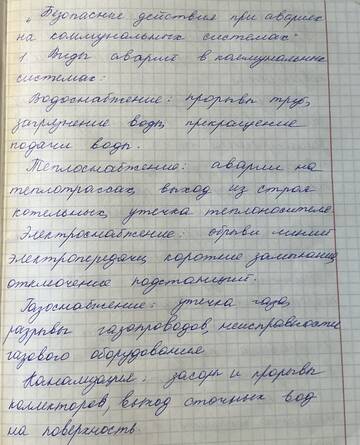 „Безопасные действия при авариях
на коммунальных системах"
1 Виды аварий в коммунальных
системах:
Водоснабжение: прорывы труб,
загрязнение воды, прекращение
подачи воды.
Теплоснабжение: аварии на
теплотрассах, выход из строя
котельных, утечка теплоносителя.
Электроснабжение: обрывы линий
электропередач, короткие замыкания,
отключение подстанций.
Газоснабжение: утечка газа,
разрывы газопроводов, неисправности
газового оборудования
Канализация: засоры и прорывы
коллекторов, выход сточных вод
на поверхность.